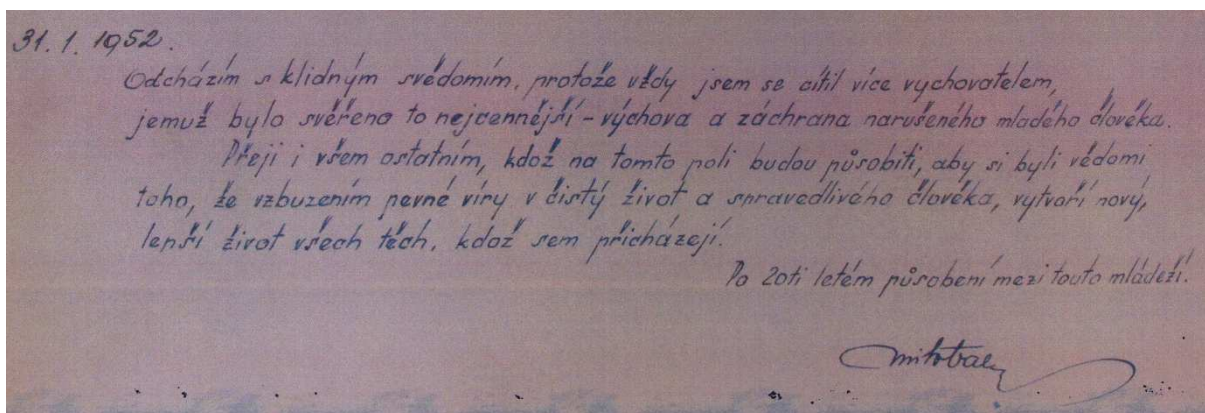 31. 1. 1952.
Odcházím s klidným svědomím, protože vždy jsem se cítil více vychovatelem,
jemuž bylo svěřeno to nejcennější - výchova a záchrana narušeného mladého člověka.
Přeji i všem ostatním, kdož na tomto poli budou působiti, aby si byli vědomi
toho, že vzbuzením pevné víry v čistý život a spravedlivého člověka, vytvoří nový,
lepší život všech těch, kdož sem přicházejí.
Po 20ti letém působení mezi touto mládeží.